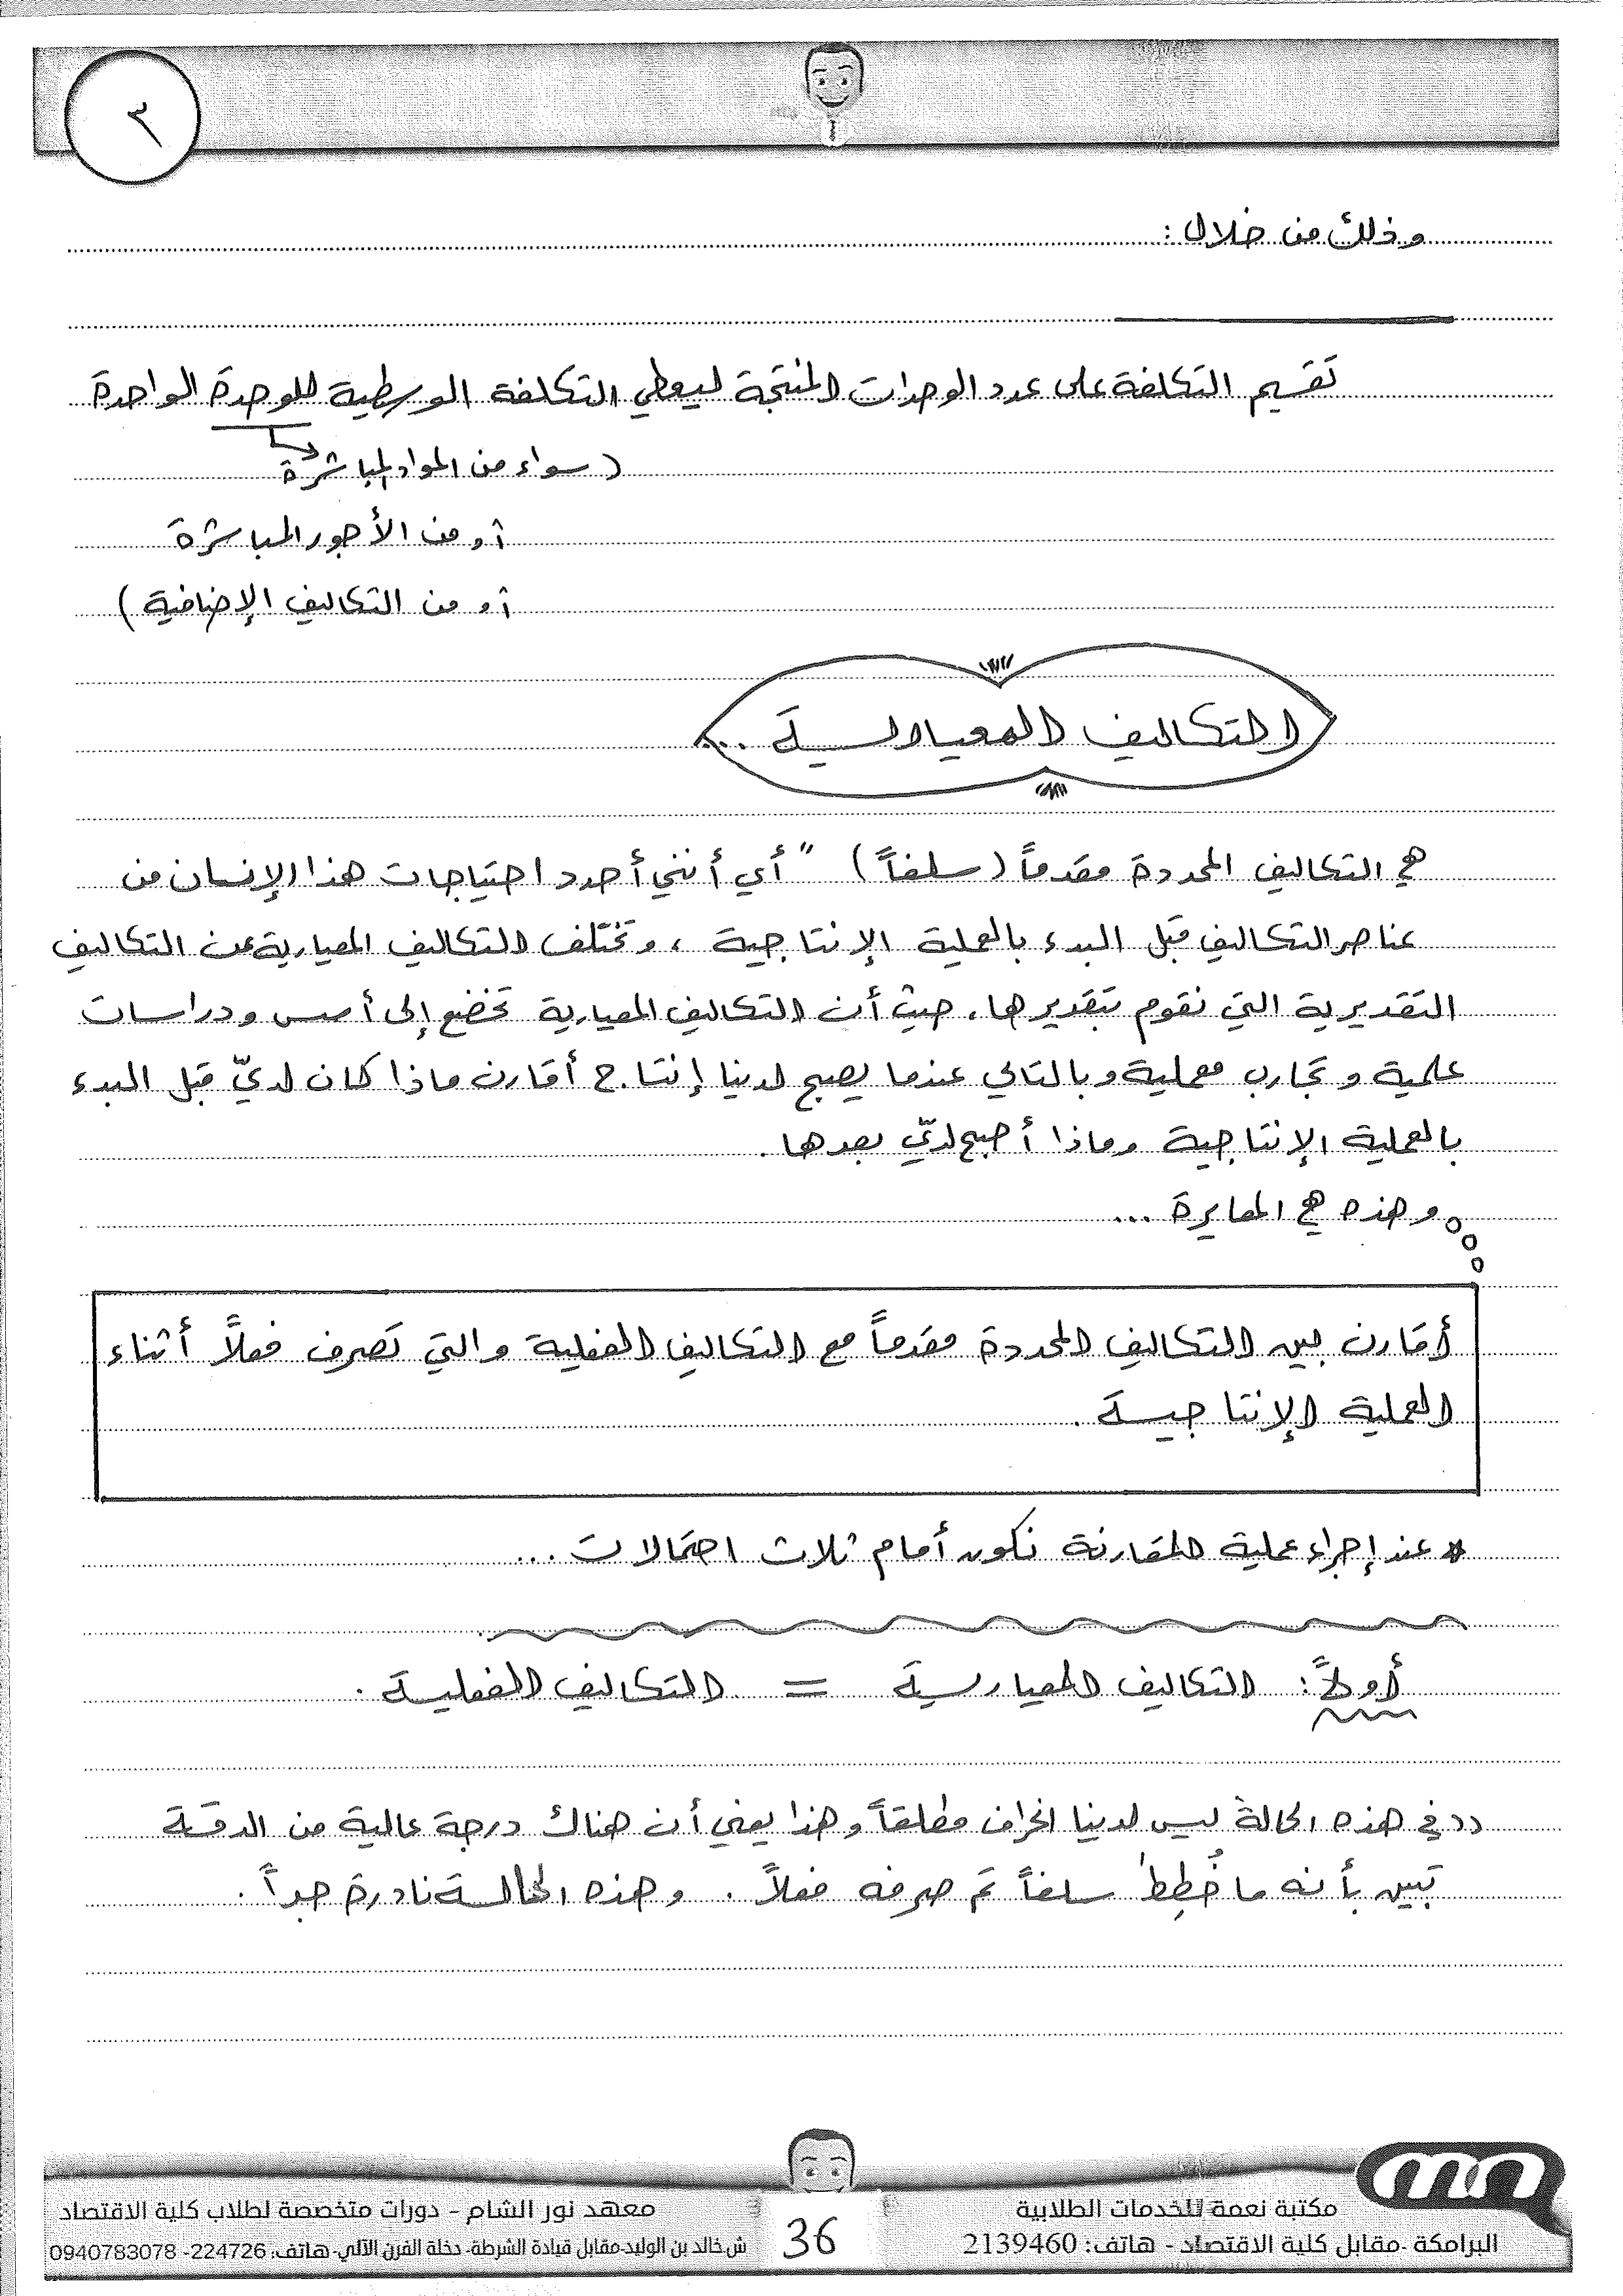 ٢
وذلك من خلال :
تقسيم التكلفة على عدد الوحدات المنتجة ليعطي التكلفة الوسطية للوحدة الواحدة
( سواء من المواد المباشرة
أو من الأجور المباشرة
أو من التكاليف الإضافية )
التكاليف المعيارية ...
هي التكاليف المحددة مقدماً ( سلفاً ) " أي أنني أحدد احتياجات هذا الإنسان من
عناصر التكاليف قبل البدء بالعملية الإنتاجية ، وتختلف التكاليف المعيارية عن التكاليف
التقديرية التي نقوم بتقديرها . حيث أن التكاليف المعيارية تخضع إلى أسس ودراسات
علمية وتجارب معملية وبالتالي عندما يصبح لدينا إنتاج أقارن ماذا كان لديّ قبل البدء
بالعملية الإنتاجية وماذا أصبح لديّ بعدها .
وهذه هي المعايرة ...
أقارن بين التكاليف المحددة مقدماً مع التكاليف الفعلية والتي تصرف فعلاً أثناء
العملية الإنتاجية .
* عند إجراء عملية المقارنة نكون أمام ثلاث احتمالات ...
أولاً : التكاليف المعيارية = التكاليف الفعلية .
" في هذه الحالة ليس لدينا انحراف مطلقاً وهذا يعني أن هناك درجة عالية من الدقة
تبين بأنه ما خُطِطَ سلفاً تم صرفه فعلاً . وهذه الحالة نادرة جداً .
مكتبة نعمة للخدمات الطلابية
البرامكة -مقابل كلية الاقتصاد - هاتف: 2139460
36
معهد نور الشام - دورات متخصصة لطلاب كلية الاقتصاد
ش.خالد بن الوليد-مقابل قيادة الشرطة- دخلة الفرن الآلي-هاتف: 224726- 0940783078